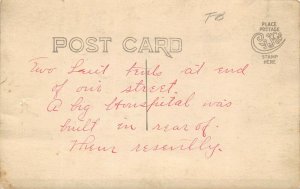 FB
POST CARD
PLACE
POSTAGE
STAMP
HERE
Two Last tents at end
of our street.
A big Honspital was
built in rear of.
Them resently.